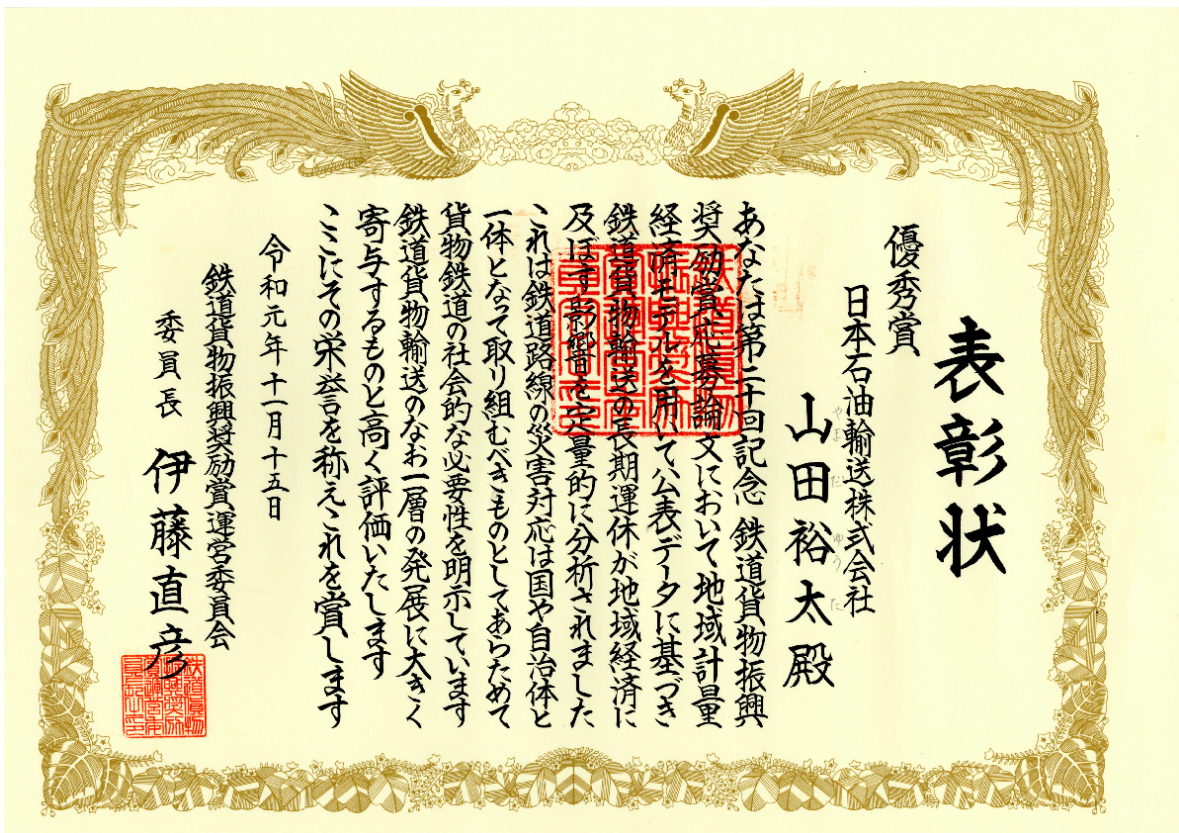 表彰状
優秀賞
日本石油輸送株式会社
山田裕太殿
やまだ ゆうた
あなたは第二十回記念 鉄道貨物振興
奨励賞応募論文において地域計量
経済モデルを用いて公表データに基づき
鉄道貨物輸送の長期運休が地域経済に
及ぼす影響を定量的に分析されました
これは鉄道路線の災害対応は国や自治体と
一体となって取り組むべきものとしてあらためて
貨物鉄道の社会的な必要性を明示しています
鉄道貨物輸送のなお一層の発展に大きく
寄与するものと高く評価いたします
ここにその栄誉を称えこれを賞します
令和元年十一月十五日
鉄道貨物振興奨励賞運営委員会
委員長 伊藤直彦